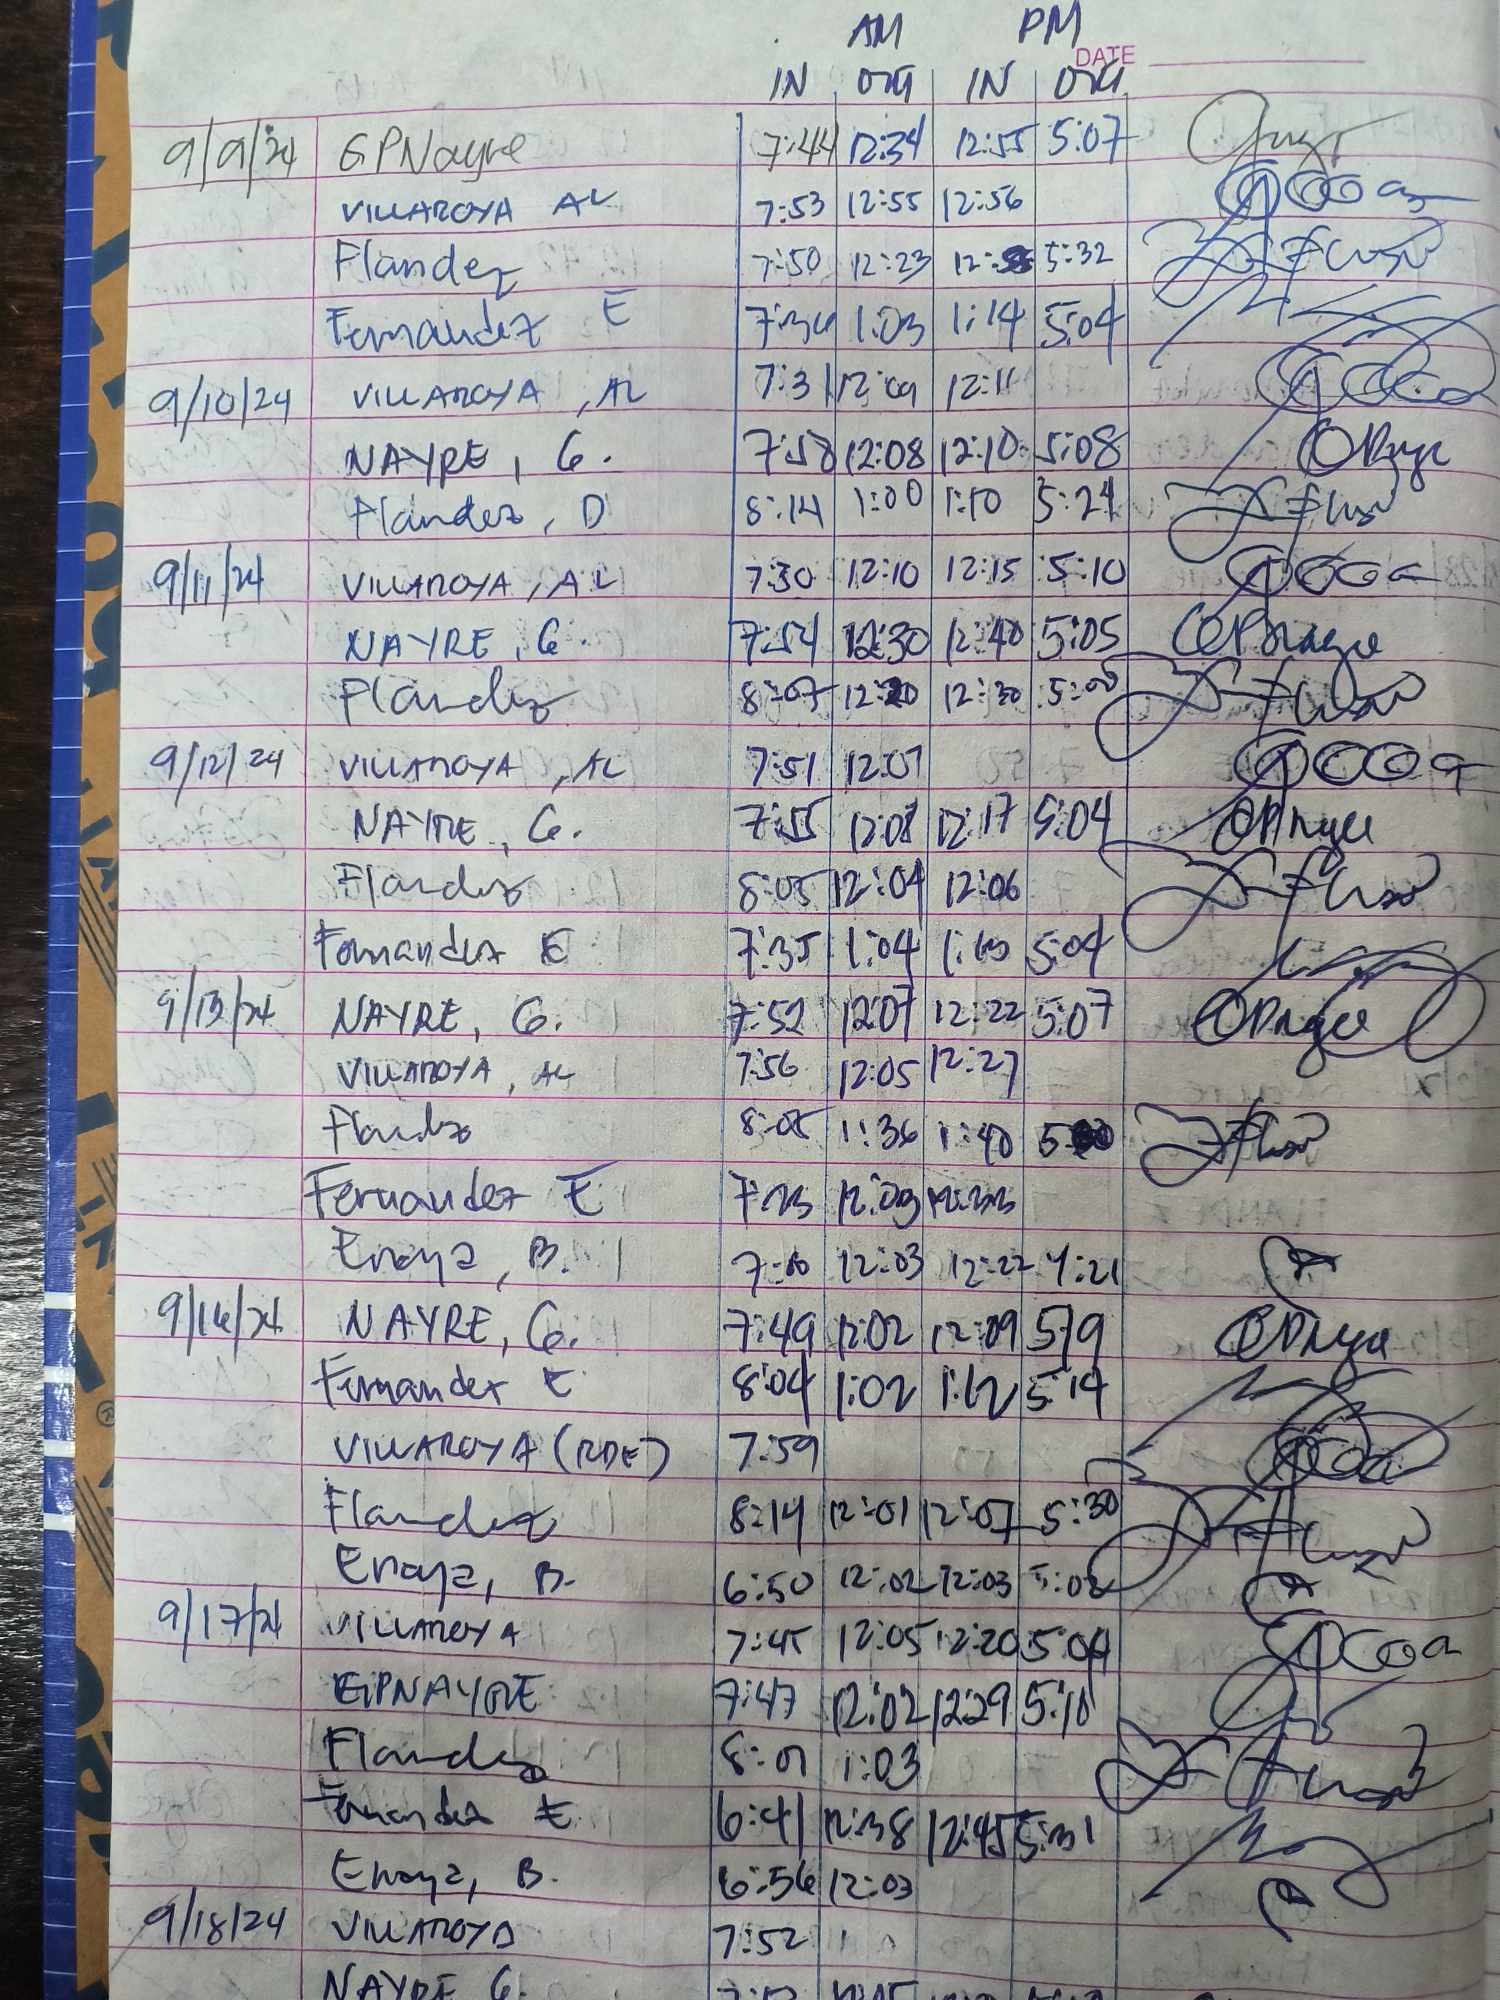 AM PM
DATE
IN OUT IN OUT
9/9/24 GPNayre 7:44 12:34 12:55 5:07
VILLAROYA AL 7:53 12:55 12:56
Flandez 7:50 12:23 5:32
Fernandez E 7:36 1:03 1:14 5:04
9/10/24 VILLAROYA, AL 7:31 12:09 12:11
NAYRE, G. 7:58 12:08 12:10 5:08
Flandez, D 8:14 1:00 1:10 5:24
9/11/24 VILLAROYA, AL 7:30 12:10 12:15 5:10
NAYRE, G. 7:54 12:30 12:40 5:05
Flandez 8:07 12:20 12:30 5:00
9/12/24 VILLAROYA, AL 7:51 12:07
NAYRE, G. 7:55 12:08 12:17 5:04
Flandez 8:05 12:04 12:06
Fernandez E 7:35 1:04 5:04
9/13/24 NAYRE, G. 7:52 12:07 12:22 5:07
VILLAROYA, AL 7:56 12:05 12:27
Flandez 8:05 1:36 1:40
Fernandez E 7:23 12:03 12:33
Enoya, B. 7:00 12:03 12:22 4:21
9/16/24 NAYRE, G. 7:49 12:02 12:09 5:19
Fernandez E 8:04 1:02 1:12 5:14
VILLAROYA (RDE) 7:59
Flandez 8:14 12:01 12:07 5:30
Enoya, B. 6:50 12:02 12:03 5:02
9/17/24 VILLAROYA 7:45 12:05 12:20 5:04
GPNAYRE 7:47 12:02 12:29 5:10
Flandez 8:01 1:03
Fernandez E 6:41 12:38 12:45 5:31
Enoya, B. 6:56 12:03
9/18/24 VILLAROYA 7:52
NAYRE G.